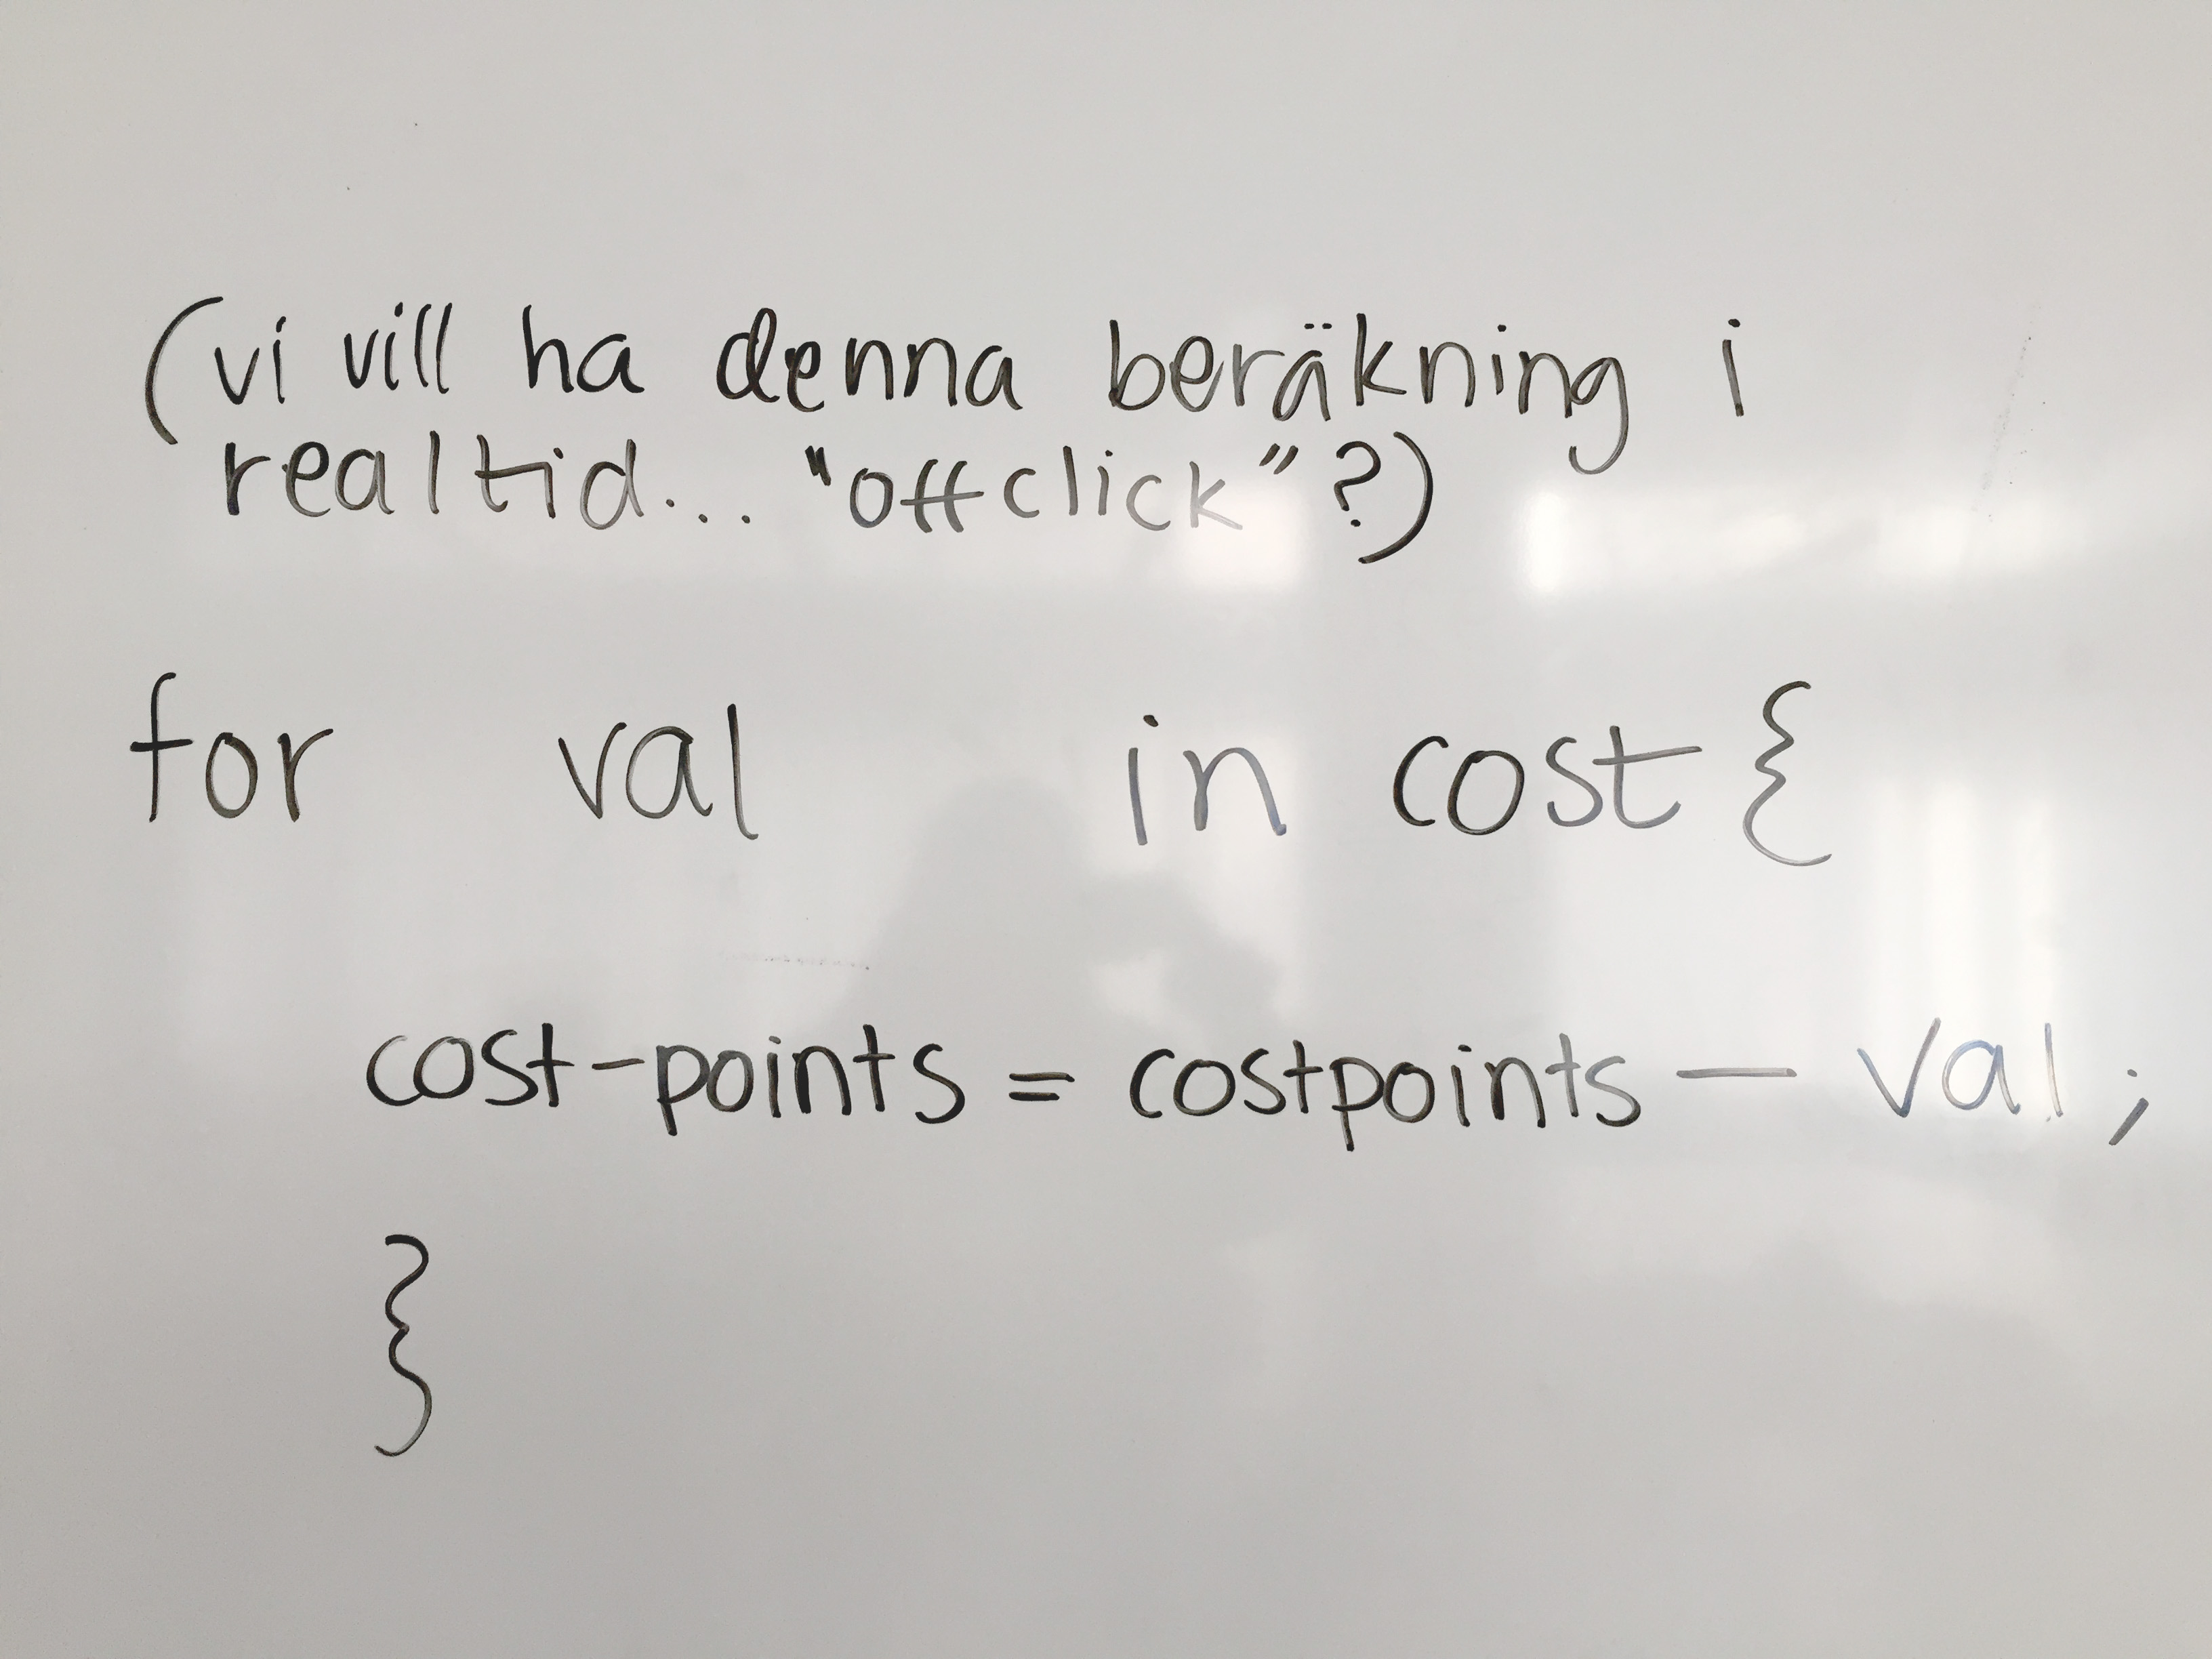 (vi vill ha denna beräkning i
realtid... "offclick"?)
for val in cost {
cost-points = costpoints - val;
}